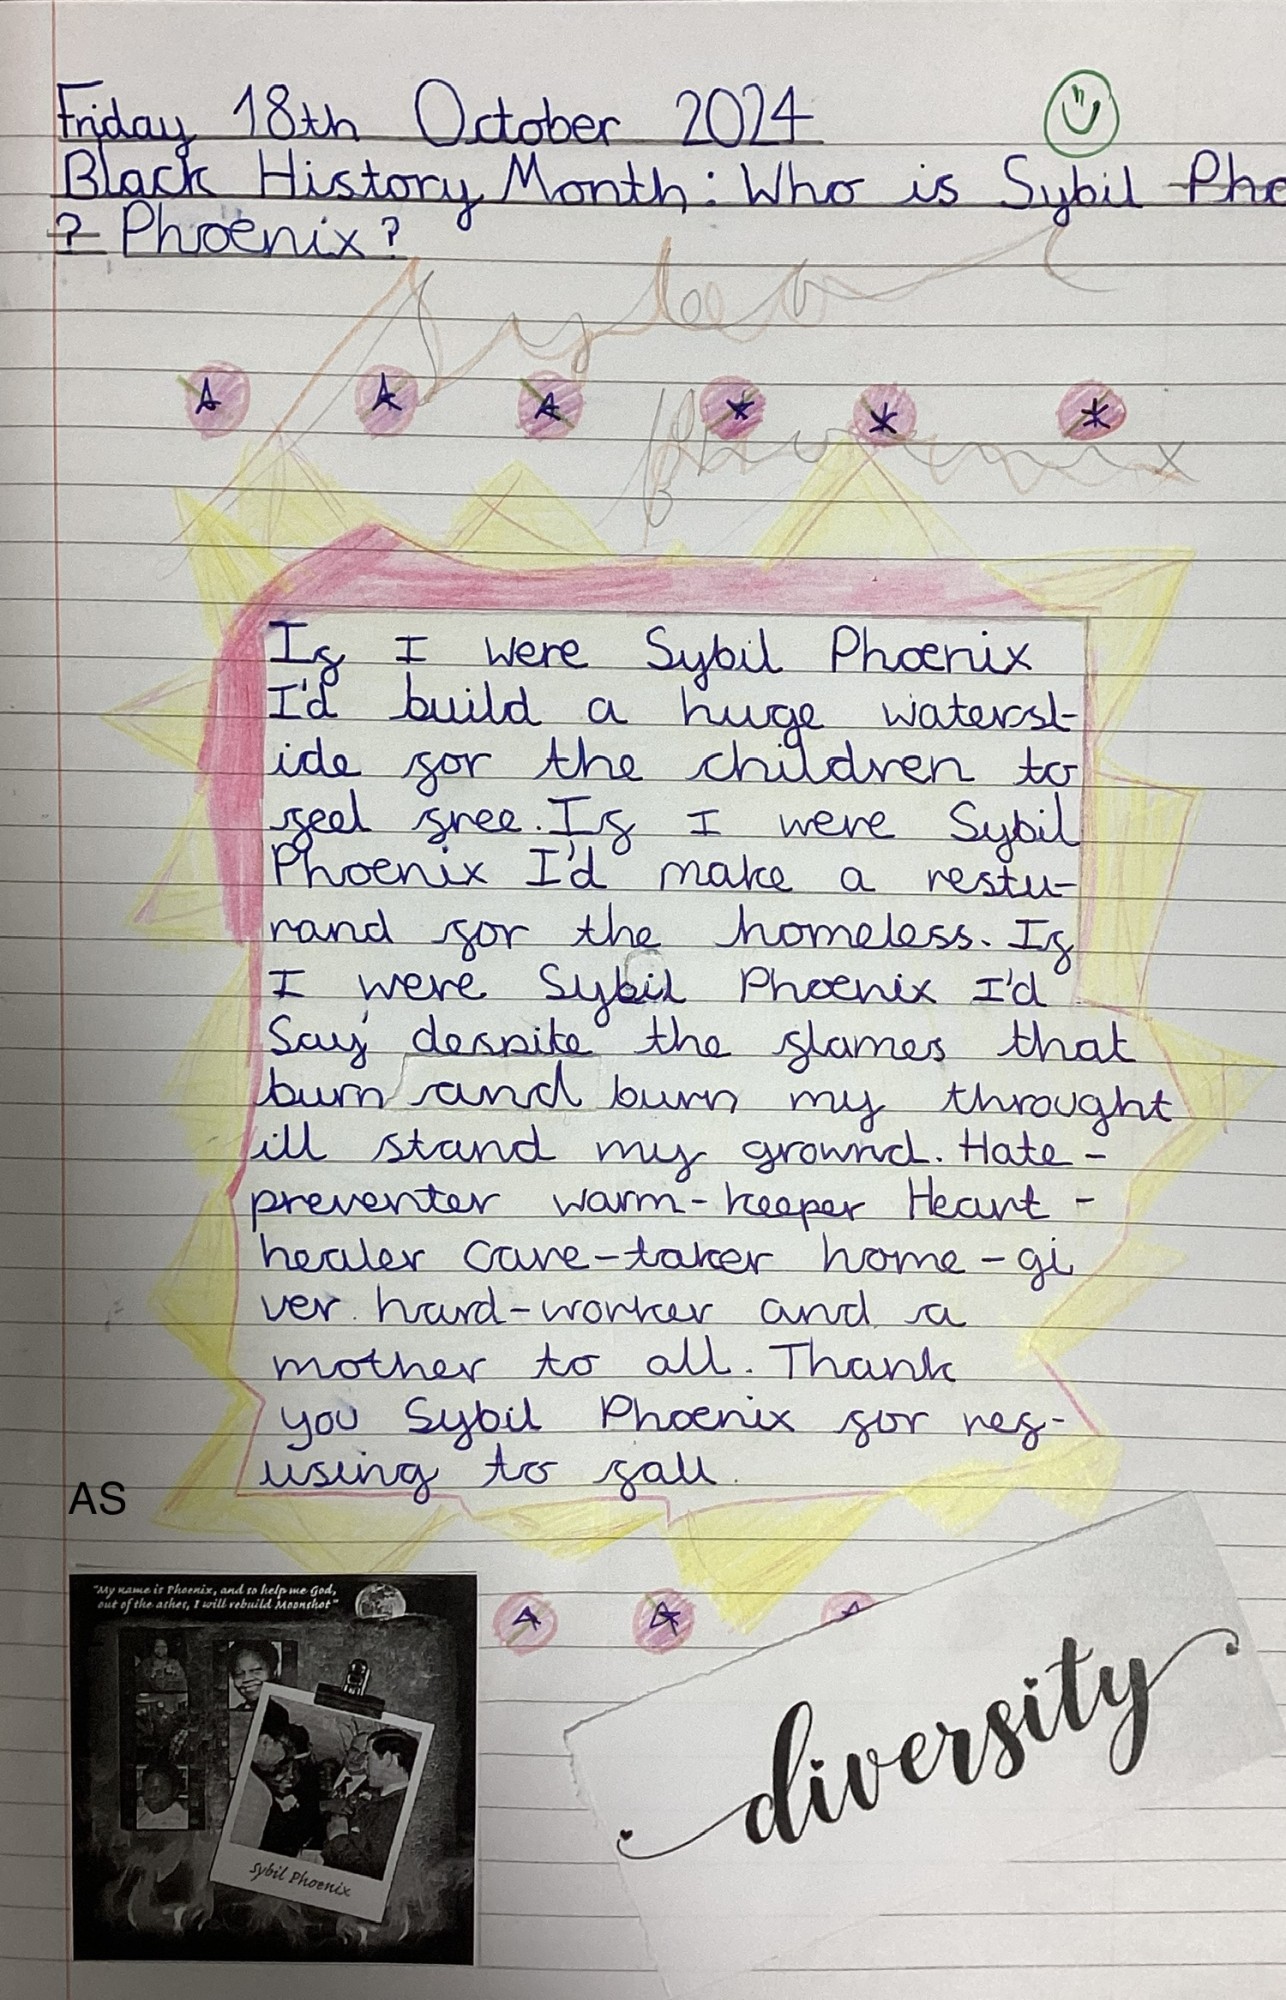 Friday 18th October 2024
Black History Month: Who is Sybil Pho
? Phoenix?
Sybil
phoenix
If I were Sybil Phoenix
I'd build a huge watersl-
ide for the children to
feel free. If I were Sybil
Phoenix I'd make a restu-
rand for the homeless. If
I were Sybil Phoenix I'd
Say despite the flames that
burn and burn my throught
ill stand my ground. Hate-
preventer warm-keeper Heart-
healer care-taker home-gi
ver hard-worker and a
mother to all. Thank
you Sybil Phoenix for ref-
using to fall.
AS
"My name is Phoenix, and so help me God,
out of the ashes, I will rebuild Moonshot"
Sybil Phoenix
diversity